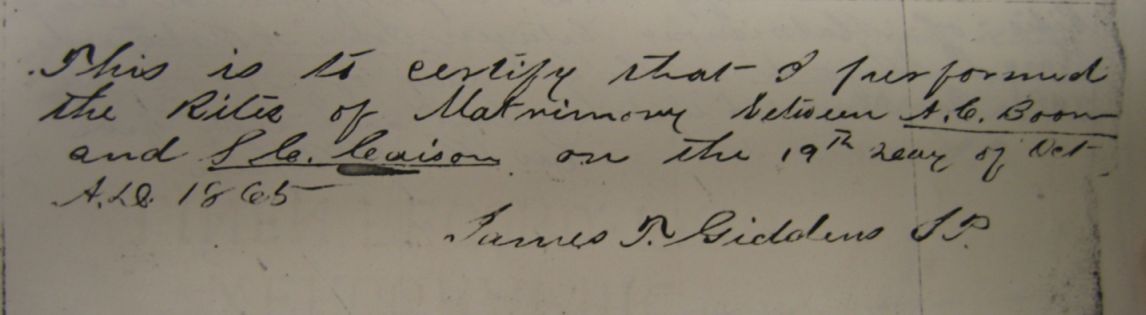 This is to certify that I performed
the Rites of Matrimony between A.C. Boon
and S C. Caison on the 19th day of Oct
A.D. 1865
James T. Giddens J.P.